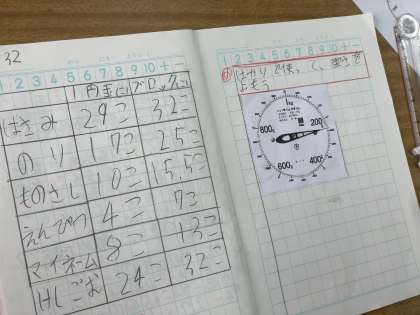 32
1 2 3 4 5 6 7 8 9 10 + −
1円玉に ブロックに
はさみ 29こ 32こ
のり 17こ 25こ
ものさし 10こ 15.5こ
えんぴつ 4こ 7こ
マイネーム 8こ 13こ
けしごむ 24こ 32こ
1 2 3 4 5 6 7 8 9 10 + −
はかりで使って、重さを
よもう
1kg
200g
400g
600g
800g